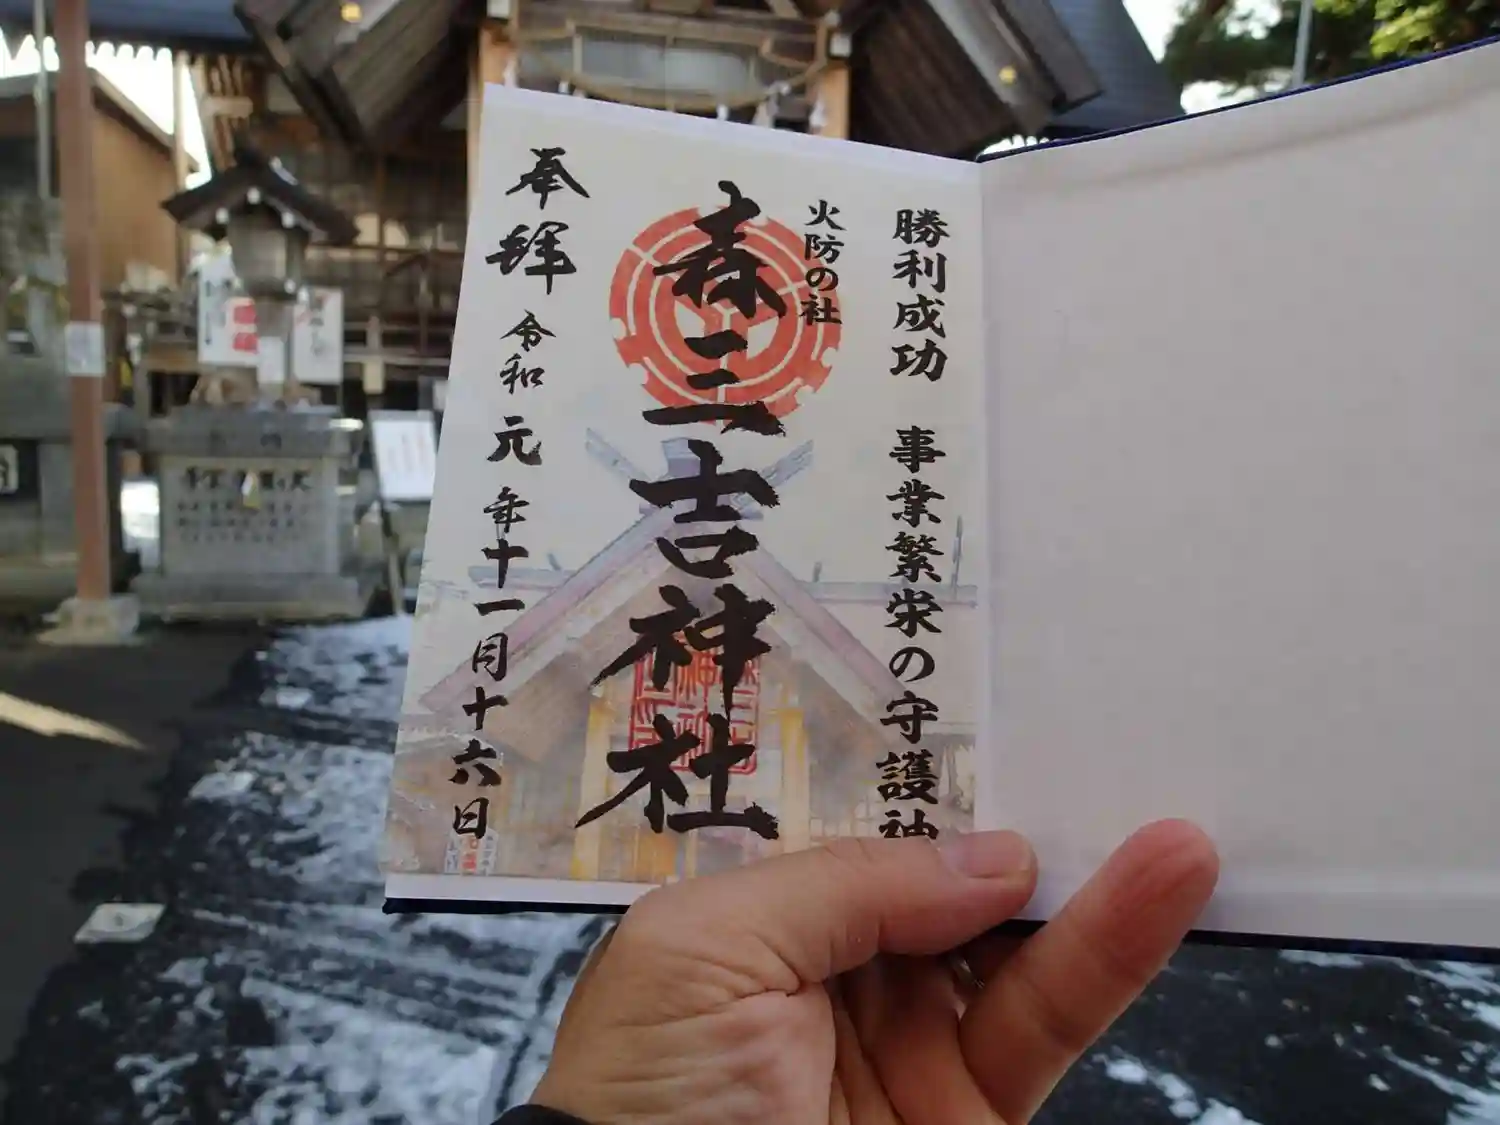 勝利成功 事業繁栄の守護神
火防の社
森三吉神社
奉拝
令和元年十一月十六日